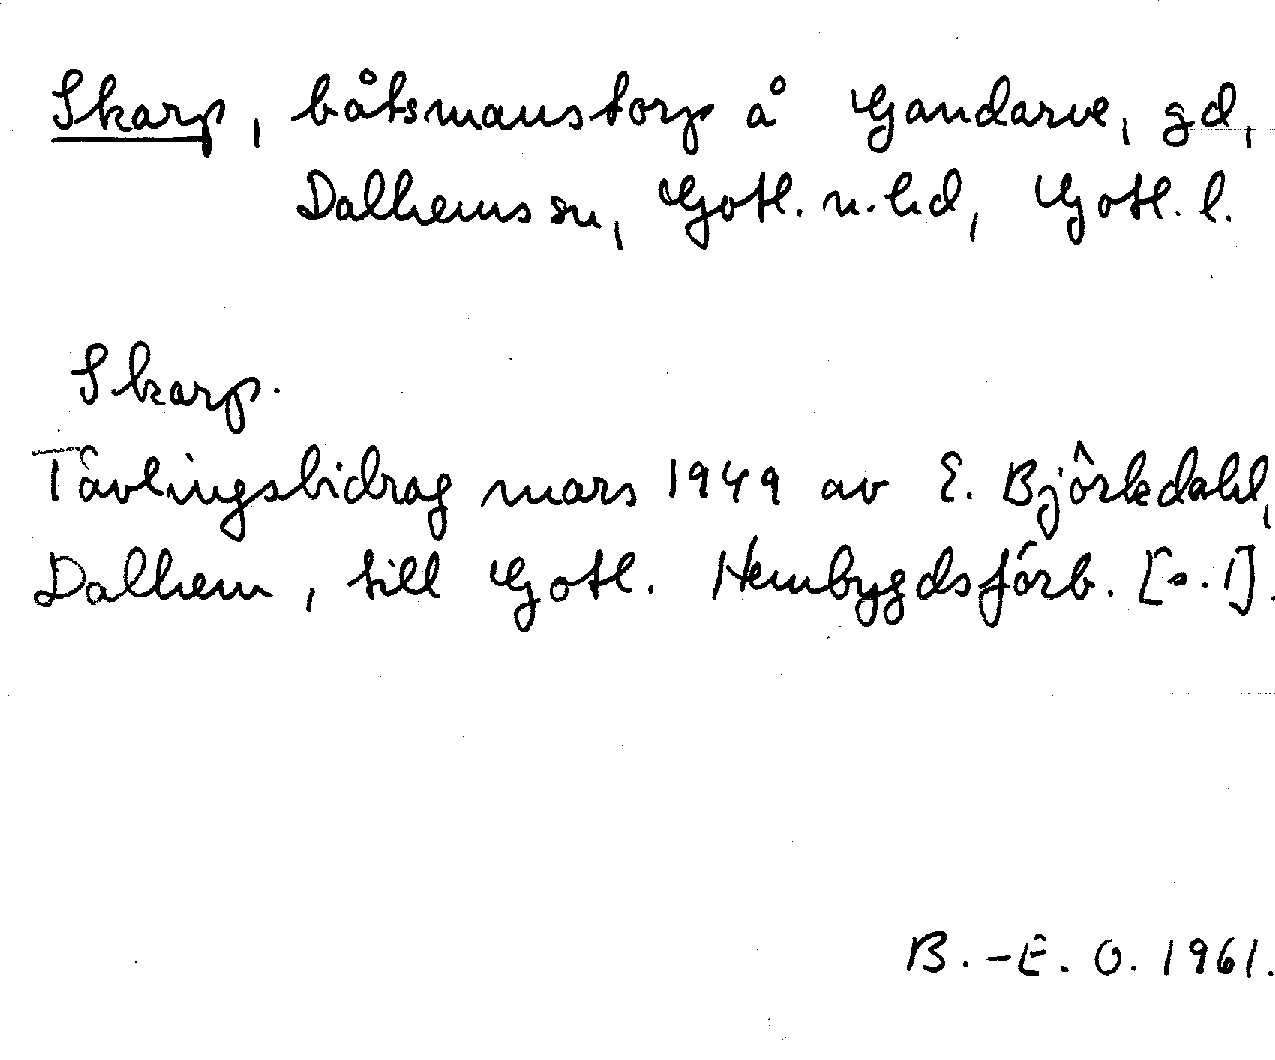 Skarp, båtsmanstorp å Gandarve, gd,
Dalhems sn, Gotl. n. hd, Gotl. l.
Skarp.
Tävlingsbidrag mars 1949 av E. Björkdahl,
Dalhem, till Gotl. Hembygdsförb. [s. 1].
B.-E. O. 1961.